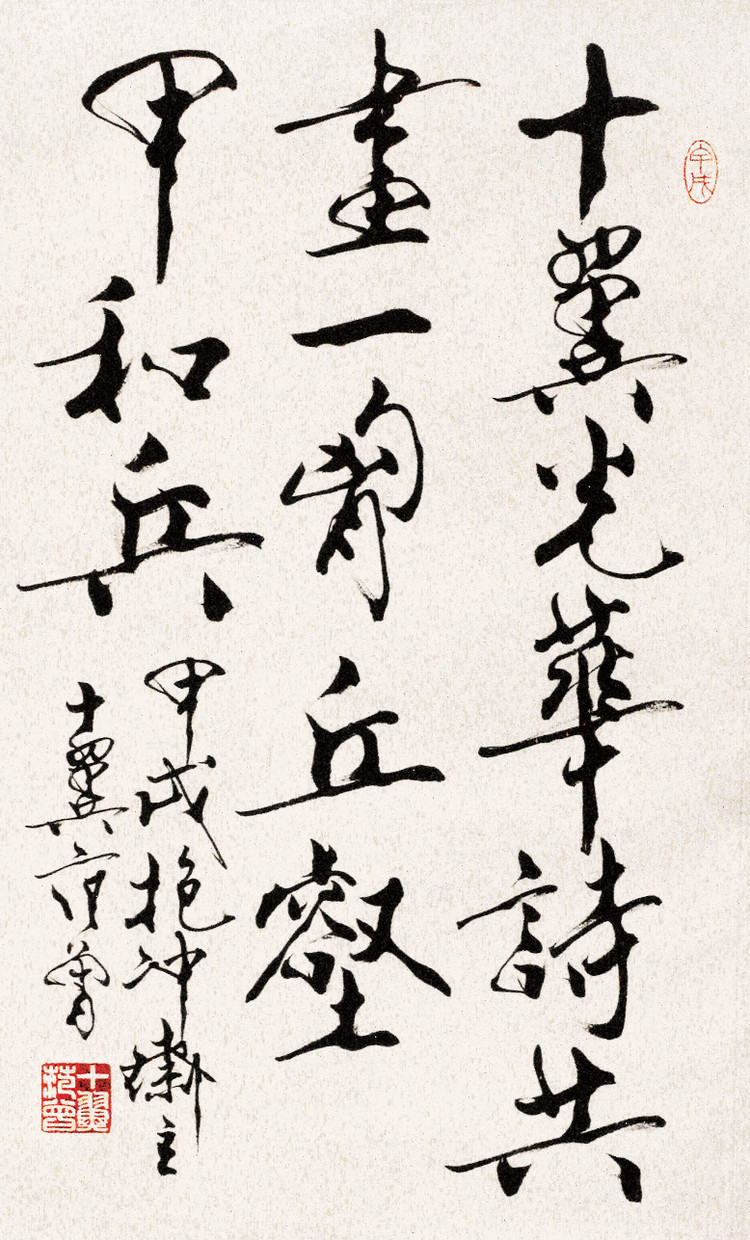 十翼光華詩共
畫一胷丘壑
甲和兵
甲戌抱冲齋主
十翼范曾
十翼
范曾